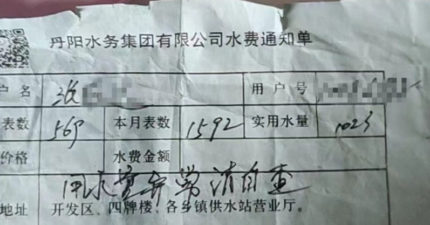 丹阳水务集团有限公司水费通知单
户名 用户号
表数 569 本月表数 1592 实用水量 1023
价格 水费金额
用水量异常请自查
地址 开发区、四牌楼、各乡镇供水站营业厅。